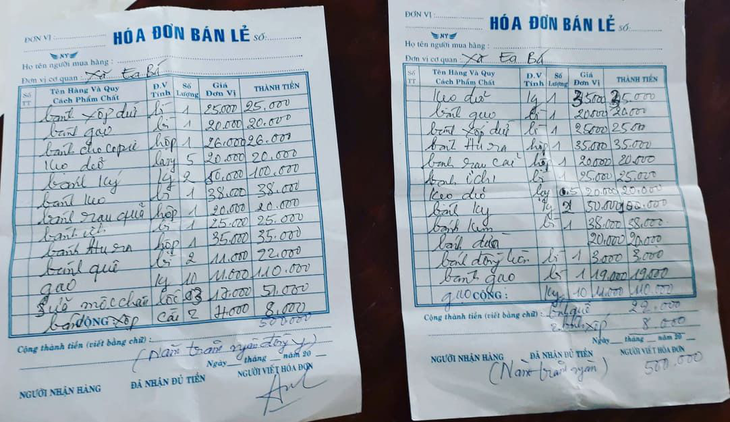 ĐƠN VỊ
HÓA ĐƠN BÁN LẺ SỐ
Họ tên người mua hàng :
Đơn vị cơ quan : Xã Ea Bá
Số TT Tên Hàng Và Quy Cách Phẩm Chất Đ.V Tính Số Lượng Giá Đơn Vị THÀNH TIỀN
bánh xốp dừa bì 1 25.000 25.000
bánh gạo bì 1 20.000 20.000
bánh hộp 1 26.000 26.000
kẹo dừa 5 20.000 20.000
bánh ký kg 2 50.000 100.000
bánh kẹo bì 1 38.000 38.000
bánh rau quả hộp 1 20.000 20.000
bánh ichi bì 1 25.000 25.000
bánh AHura hộp 1 35.000 35.000
bánh quê bì 2 11.000 22.000
gạo kg 10 11.000 110.000
Sữa mộc châu lốc 3 17.000 51.000
bánh xốp cái 2 4.000 8.000
CỘNG 500.000
Cộng thành tiền (viết bằng chữ) :
(Năm trăm ngàn đồng)
Ngày tháng năm 20
NGƯỜI NHẬN HÀNG ĐÃ NHẬN ĐỦ TIỀN NGƯỜI VIẾT HÓA ĐƠN
ĐƠN VỊ
HÓA ĐƠN BÁN LẺ SỐ
Họ tên người mua hàng :
Đơn vị cơ quan : Xã Ea Bá
Số TT Tên Hàng Và Quy Cách Phẩm Chất Đ.V Tính Số Lượng Giá Đơn Vị THÀNH TIỀN
kẹo dừa kg 1
bánh gạo bì 1 20.000 20.000
bánh xốp dừa bì 1 25.000 25.000
bánh AHura hộp 1 35.000 35.000
bánh rau cải hộp 1 20.000 20.000
bánh ichi bì 1 25.000 25.000
kẹo dừa kg 0.5 20.000 20.000
bánh ký kg 2 50.000
bánh kem bì 1 38.000 38.000
bánh dừa 20.000 20.000
bánh đồng tiền bì 1 3.000 3.000
bánh gạo bì 1 19.000 19.000
gạo kg 10 110.000
CỘNG :
quê
Cộng thành tiền (viết bằng chữ) : bánh xốp 8.000
Ngày tháng năm 20
NGƯỜI NHẬN HÀNG ĐÃ NHẬN ĐỦ TIỀN NGƯỜI VIẾT HÓA ĐƠN
(Năm trăm ngàn) 500.000